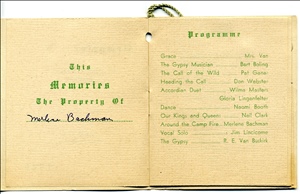 This
Memories
The Property Of
Merlene Bachman
Programme
Grace Mrs. Van
The Gypsy Musician Bert Boling
The Call of the Wild Pat
Heeding the Call Don Webster
Accordian Duet Wilma
Gloria
Dance Naomi Booth
Our Kings and Queens Nell Clark
Around the Camp Fire Merlene Bachman
Vocal Solo Jim
The Gypsy R. E. Van Buskirk